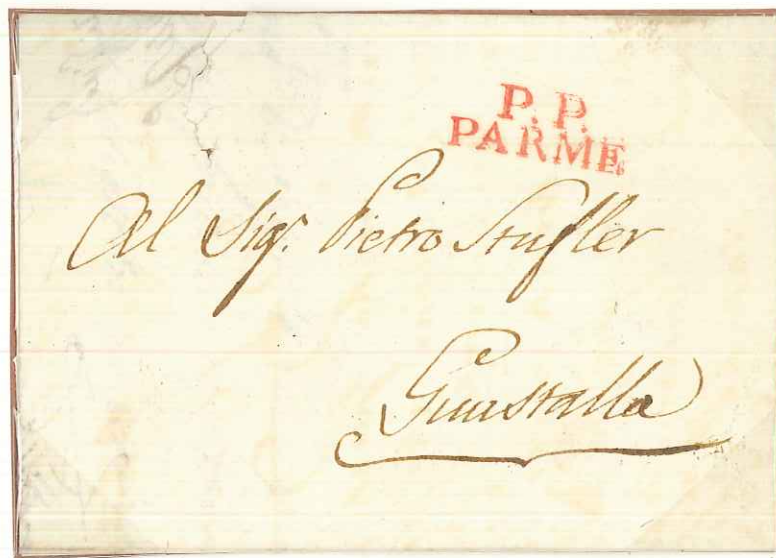 P. P.
PARME
Al Sig.r Pietro Stufler
Guastalla